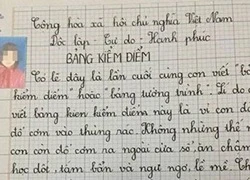 Cộng hòa xã hội chủ nghĩa Việt Nam
Độc lập - Tự do - Hạnh phúc
BẢNG KIỂM ĐIỂM
Có lẽ đây là lần cuối cùng con viết "bả
kiểm điểm" hoặc "bảng tường trình". Lí do c
viết bảng kiểm kiểm điểm này là vì con đa
đổ cơm vào thùng rác. Không những thế m
con còn đổ cơm ra ngoài cửa sổ, ăn chậm
học dốt, tàm bẩn và ngu ngơ, lề mề. Ch